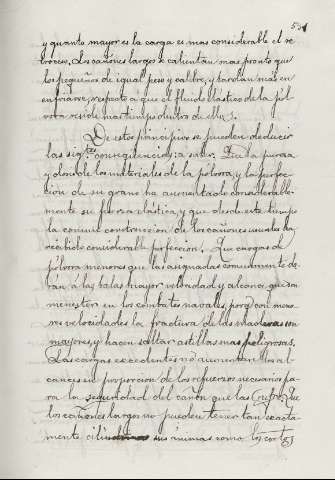 y quanto mayor es la carga es mas considerable el re
troceso. Los cañones largos se calientan mas pronto que
los pequeños de igual peso y calibre, y tardan mas en
enfriarse, respecto á que el fluido elastico de la pól
vora reside mas tiempo dentro de ellos.
De estos principios se pueden deducir
las sigtes. consequencias; á saber: Que la pureza
y doble de los materiales de la pólvora, y la perfec-
cion de su grano ha aumentado considerable-
mente su fuerza elástica, y que desde este tiempo
la comun construccion de los cañones usuales ha
recibido considerable perfeccion. Que cargas de
pólvora menores que las asignadas comunmente da-
rán á las balas mayor velocidad y alcance que son
menester en los combates navales, porq. con meno-
res velocidades la fractura de las maderas son
mayores, y hacen saltar astillas mas peligrosas.
Las cargas excedentes no aumentan los al-
cances en proporcion de los refuerzos necesarios pa-
ra la seguridad del cañon que las sufre. Que
los cañones largos no pueden tener tan exacta-
mente sus animas como los cortos